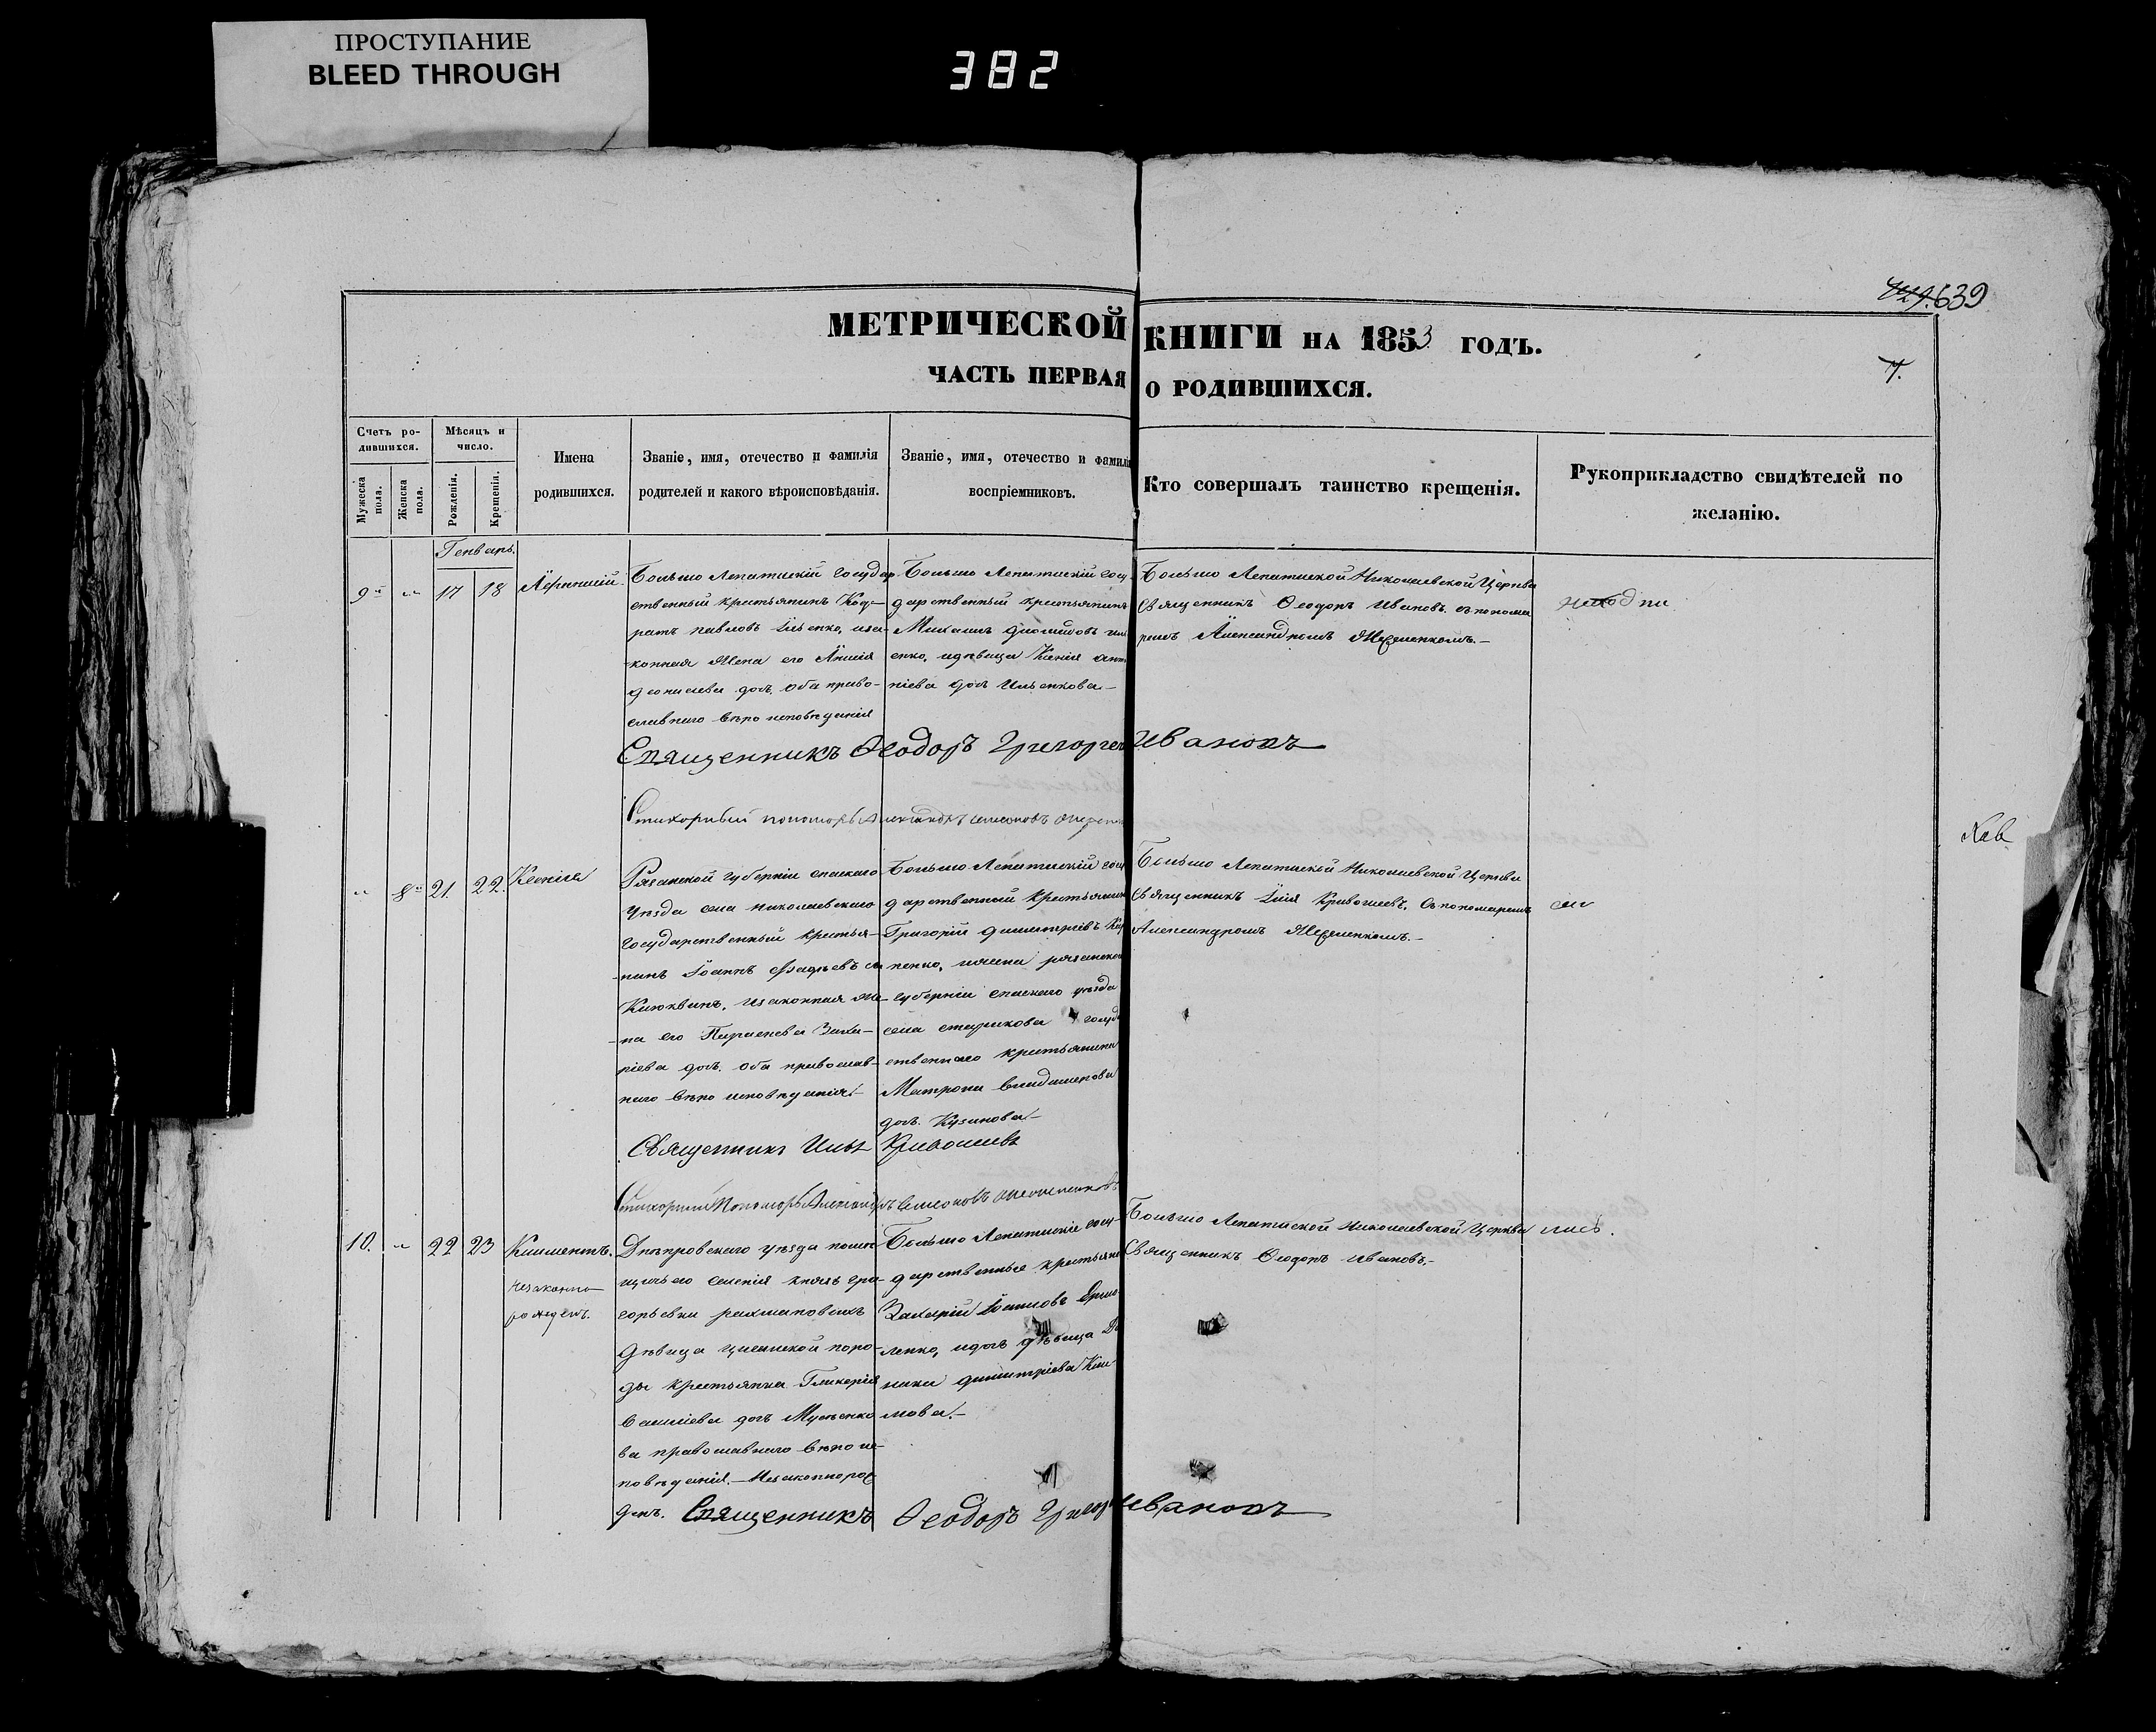 ПРОСТУПАНИЕ
BLEED THROUGH
382
639
МЕТРИЧЕСКОЙ КНИГИ НА 1853 ГОДЪ.
7.
ЧАСТЬ ПЕРВАЯ О РОДИВШИХСЯ.
Счетъ ро-
дившихся.
Мужеска
пола.
Женска
пола.
Мѣсяцъ и
число.
Рожденія.
Крещенія.
Имена
родившихся.
Званіе, имя, отечество и фамилія
родителей и какого вѣроисповѣданія.
Званіе, имя, отечество и фамилі
воспріемниковъ.
Кто совершалъ таинство крещенія.
Рукоприкладство свидѣтелей по
желанію.
Генварь.
9й
17
18
Больше Лепатискій государ
ственный крестьянинъ Код-
ратъ Павловъ Ільенко, иза-
конная жена его
діонисіева доч. оба право-
славнаго вѣроисповѣданія
Больше Лепатискій госу
дарственный крестьянинъ
Михаилъ Иль
енко, идѣвица Ксенія
піева доч Ильенкова
Больше Лепатиской Николаевской Церкви
Священникъ Ѳеодоръ Ивановъ съ понома
ремъ Александромъ
Священникъ Ѳеодоръ Григорьев Ивановъ
Стихорный пономарь Александръ
8я
21.
22.
Ксенія
Рязанской губерніи спаскаго
уѣзда села николаевскаго
государственный крестья-
нинъ Іоаннъ Фадѣевъ
Клюквинъ, изаконная же-
на его Параскева Заха-
ріева доч. оба православ-
наго вѣроисповѣданія
Больше Лепатискій госу
дарственный крестьянин
Григорій димитріевъ
пенко, ижена рязанской
губерніи спаскаго уѣзда
села старикова госуда
ственнаго крестьянина
Матрона
доч. Кузинова
Больше Лепатиской Николаевской Церкви
Священникъ Ілія Кривошеевъ, съ пономаремъ
Александромъ
Священникъ Илья Кривошеевъ
Стихорный Пономарь Александръ
10.
22
23
Климентъ.
незаконно
рожденъ.
Днѣпровскаго уѣзда помѣ
щичьяго селенія князь гри
горьевки рахмановскъ
дѣвица цыганской поро-
ды крестьянка Гликерія
василіева доч Мусѣенко
ва православнаго вѣроис-
повѣданія.— Незаконнорож
денъ.
Больше Лепатискіе госу-
дарственные крестьяне
Захарій Іоанновъ Ермо
ленко, идочь дѣвица До
ника димитріева Кли
мова.—
Больше Лепатиской Николаевской Церкви
Священникъ Ѳеодоръ Ивановъ.—
Священникъ Ѳеодоръ Григор Ивановъ